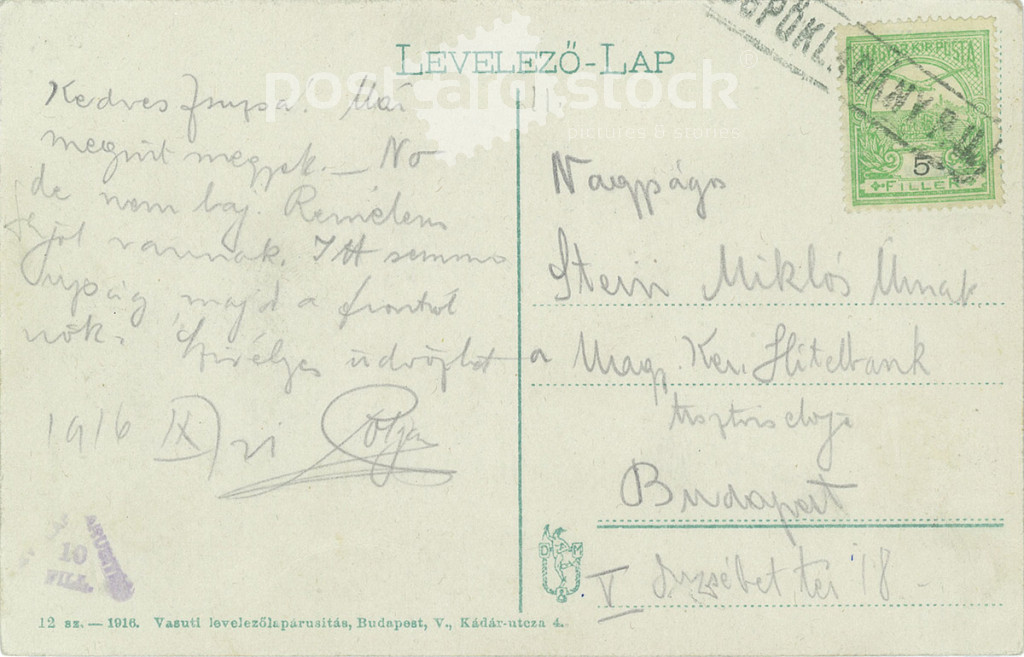 LEVELEZŐ-LAP
postcards.stock
pictures & stories
PÜSPÖKLADÁNY P.U.
MAGYAR KIR. POSTA
5
FILLER
Kedves Zsuzsa. Már
megint megyek. — No
de nem baj. Remélem
jól vannak. Itt semmi
ujság, majd a frontról
írok. Szivélyes üdvözlet
1916 IX/21
Nagyságos
Stein Miklós Úrnak
a Magy. Ker. Hitelbank
Budapest
V Erzsébet tér 18.
10
FILL.
D M
12 sz. — 1916. Vasuti levelezőlapárusitás, Budapest, V., Kádár-utcza 4.